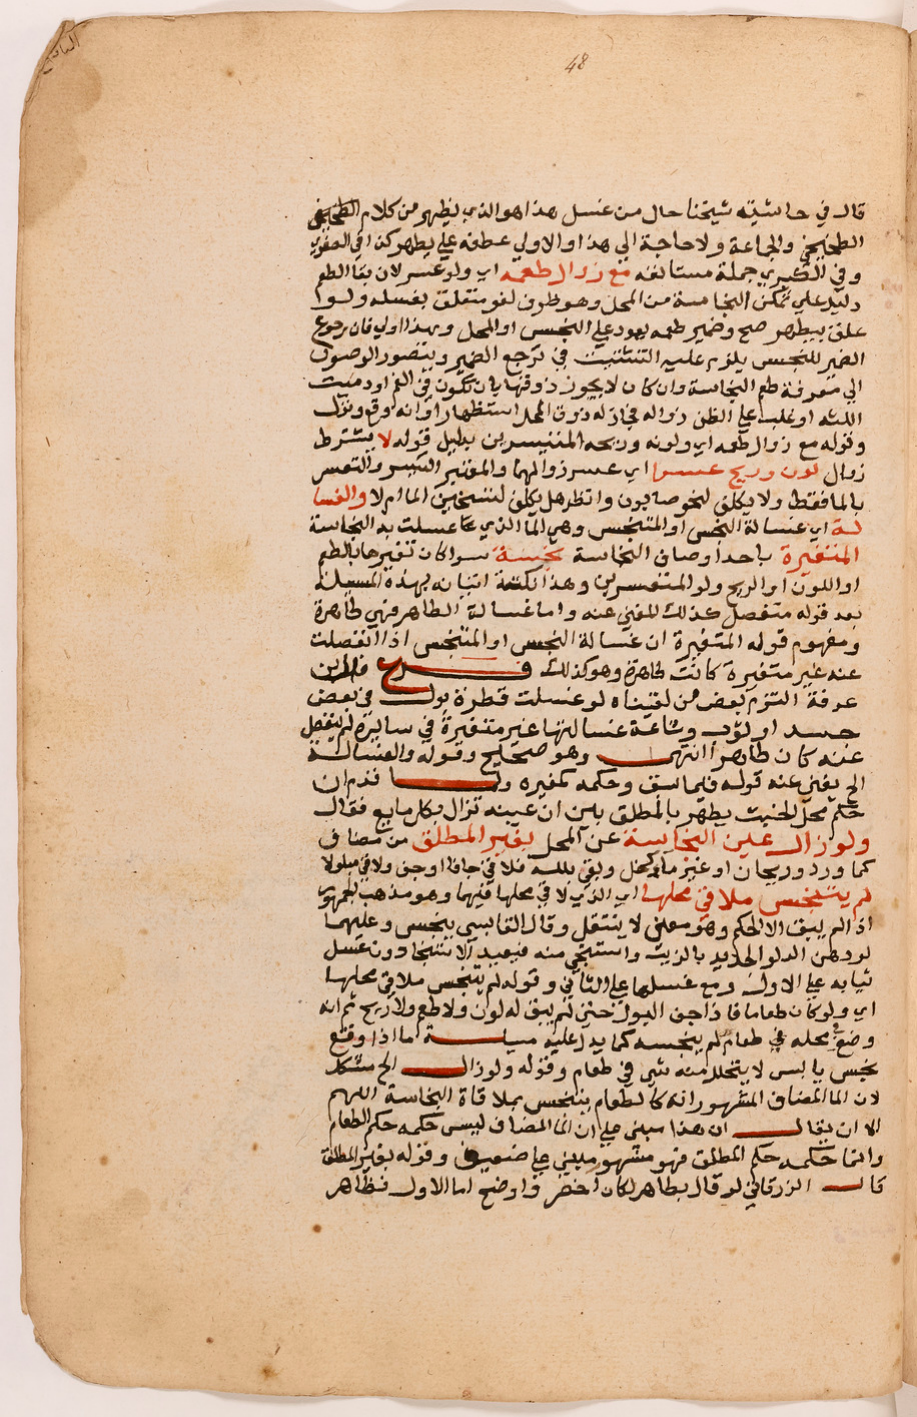 48
قال في حاشيته شيخنا حال من غسل هذا هو الذي يظهر من كلام
الطخيخي والجماعة ولا حاجة الي هذا والاولي عطفه علي يطهر كذا في الصغري
وفي الكبير جملة مستانفه مع زوال طعمه اي ولو عسر لان بقا الطعم
دليل علي تمكن النجاسة من المحل وهو ظرف لغو متعلق بغسله ولو
علق بيطهر صح وضمير طعمه يعود علي النجس او المحل وبهذا اولي فان رجوع
الضمير للنجس يلزم عليه التشتيت في مرجع الضمير ويتصور الوصول
الي معرفة طعم النجاسة وان كان لا يجوز ذوقها بان تكون في الفم او دميت
اللثه او غلب علي الظن زواله فجاز له ذوق المحل استظهارا وانه وقع ونزل
وقوله مع زوال طعمه اي ولونه وريحه المتيسرين بدليل قوله لا يشترط
زوال لون وريح عسرا اي عسر زوالهما والمعتبر التيسر والتعسر
بالما فقط ولا يكلف لنحو صابون وانظر هل يكلف لتسخين الما ام لا والغسا
لة اي غسالة النجس او المتنجس وهي الما الذي غسلت به النجاسة
المتغيرة باحد اوصاف النجاسة نجسة سوا كان تغيرها بالطعم
او اللون او الريح ولو المتعسرين وهذا نكتة اتيانه بهذه المسئلة
بعد قوله منفصل كذلك المغني عنه واما غسالة الطاهر فهي طاهرة
ومفهوم قوله المتغيرة ان غسالة النجس او المتنجس اذا انفصلت
عنه غير متغيرة كانت طاهرة وهو كذلك فرع قال ابن
عرفة التزم بعض من لقيناه لو غسلت قطرة بول في بعض
جسد او ثوب وشاعة غسالتها غير متغيرة في سايره لم ينفصل
عنه كان طاهرا انتهى وهو صحيح وقوله والغسالة
الخ يغني عنه قوله فيما سبق وحكمه كمغيره ولما قدم ان
حكم محل الخبث يطهر بالمطلق بين ان عينه تزال بكل مايع فقال
ولو زال عين النجاسة عن المحل بغير المطلق من مضاف
كما ورد وريحان او غيره ما كخل وبقي بلله فلاقي جافا او جف ولاقي مبلولا
لم يتنجس ملاقي محلها اي الذي لاقي محلها فيهما وهو مذهب الجمهور
اذ لم يبق الا الحكم وهو معني لا ينتقل وقال القابسي ينجس وعليهما
لو دهن الدلو الجديد بالزيت واستنجي منه فيعيد الاستنجا دون غسل
ثيابه علي الاول ومع غسلها علي الثاني وقوله لم يتنجس ملاقي محلها
اي ولو كان طعاما فاذا جف البول حتي لم يبق له لون ولا طعم ولا ريح ثم انه
وضع في محله طعام لم ينجسه كما يدل عليه اما اذا وقع
نجس يابس لا يتحلل منه شي في طعام وقوله ولو زال الخ مشكل
لان الما المضاف المشهور انه كالطعام يتنجس بملاقاة النجاسة اللهم
الا ان يقال ان هذا مبني علي ان الما المضاف ليس حكمه حكم الطعام
وانما حكمه حكم المطلق فهو مشهور مبني علي ضعيف وقوله بغير المطلق
قال الزرقاني لو قال بطاهر لكان اخصر واوضح اما الاول فظاهر